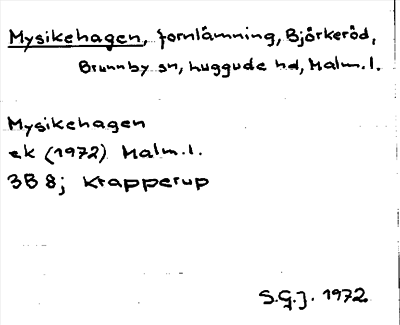 Mysikehagen, fornlämning, Björkeröd,
Brunnby sn, Luggude hd, Malm.l.
Mysikehagen
ek (1972) Malm.l.
3B 8; Krapperup
S.G.J. 1972